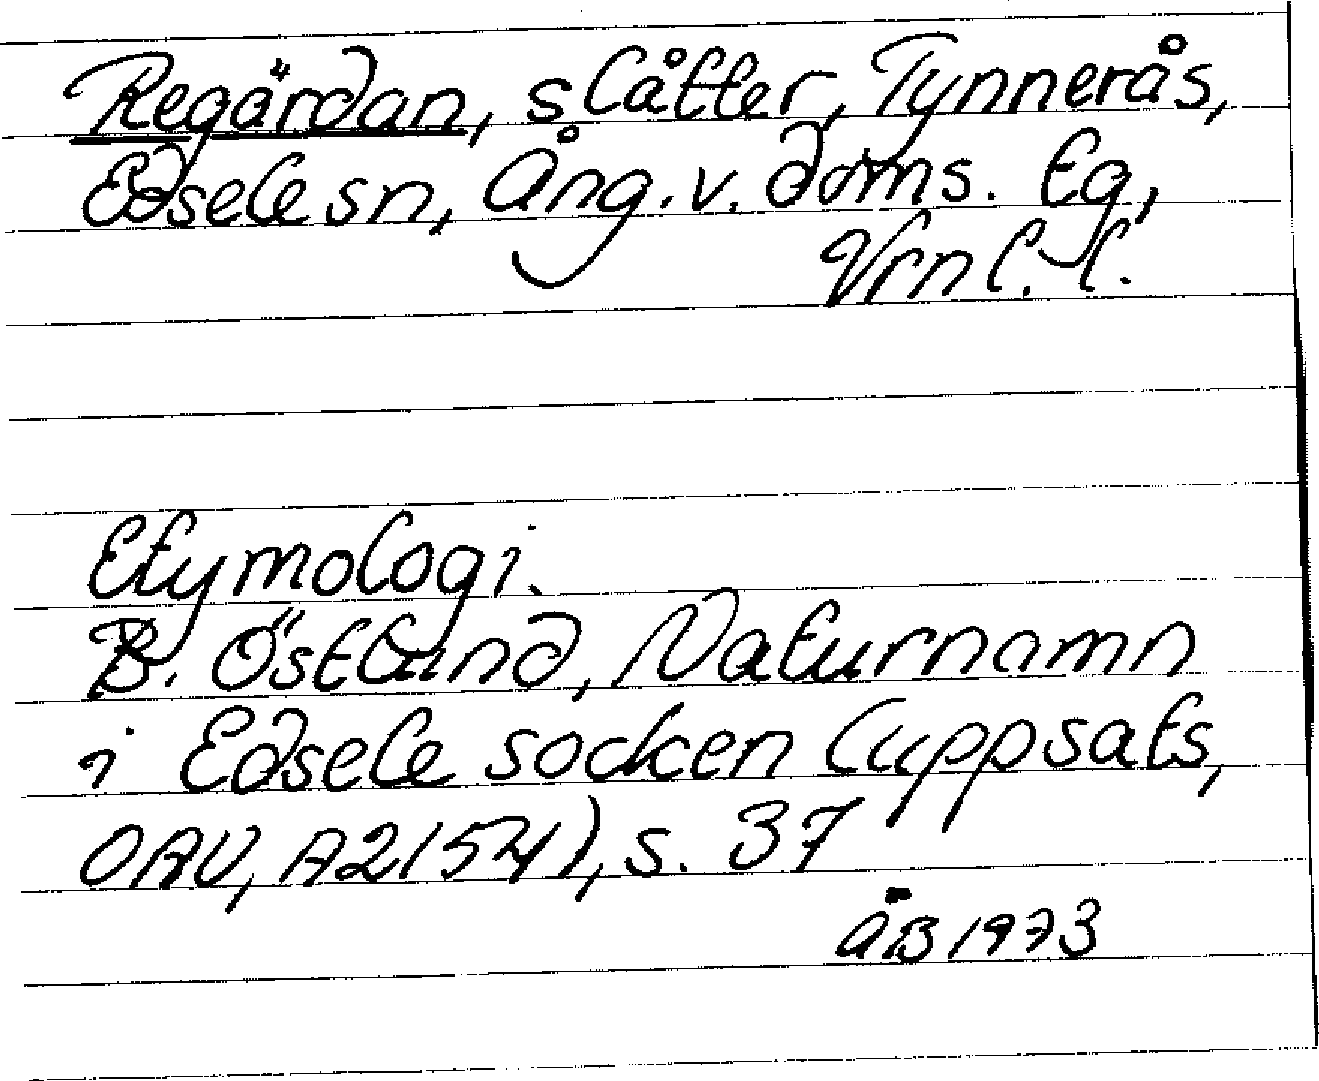 Regärdan, slåtter, Tynnerås,
Edsele sn, Ång. v. doms. Eg,
Vrn l. l.
Etymologi.
B. Östlund, Naturnamn
i Edsele socken (uppsats,
OAU, A2154), s. 37
ÅB 1973